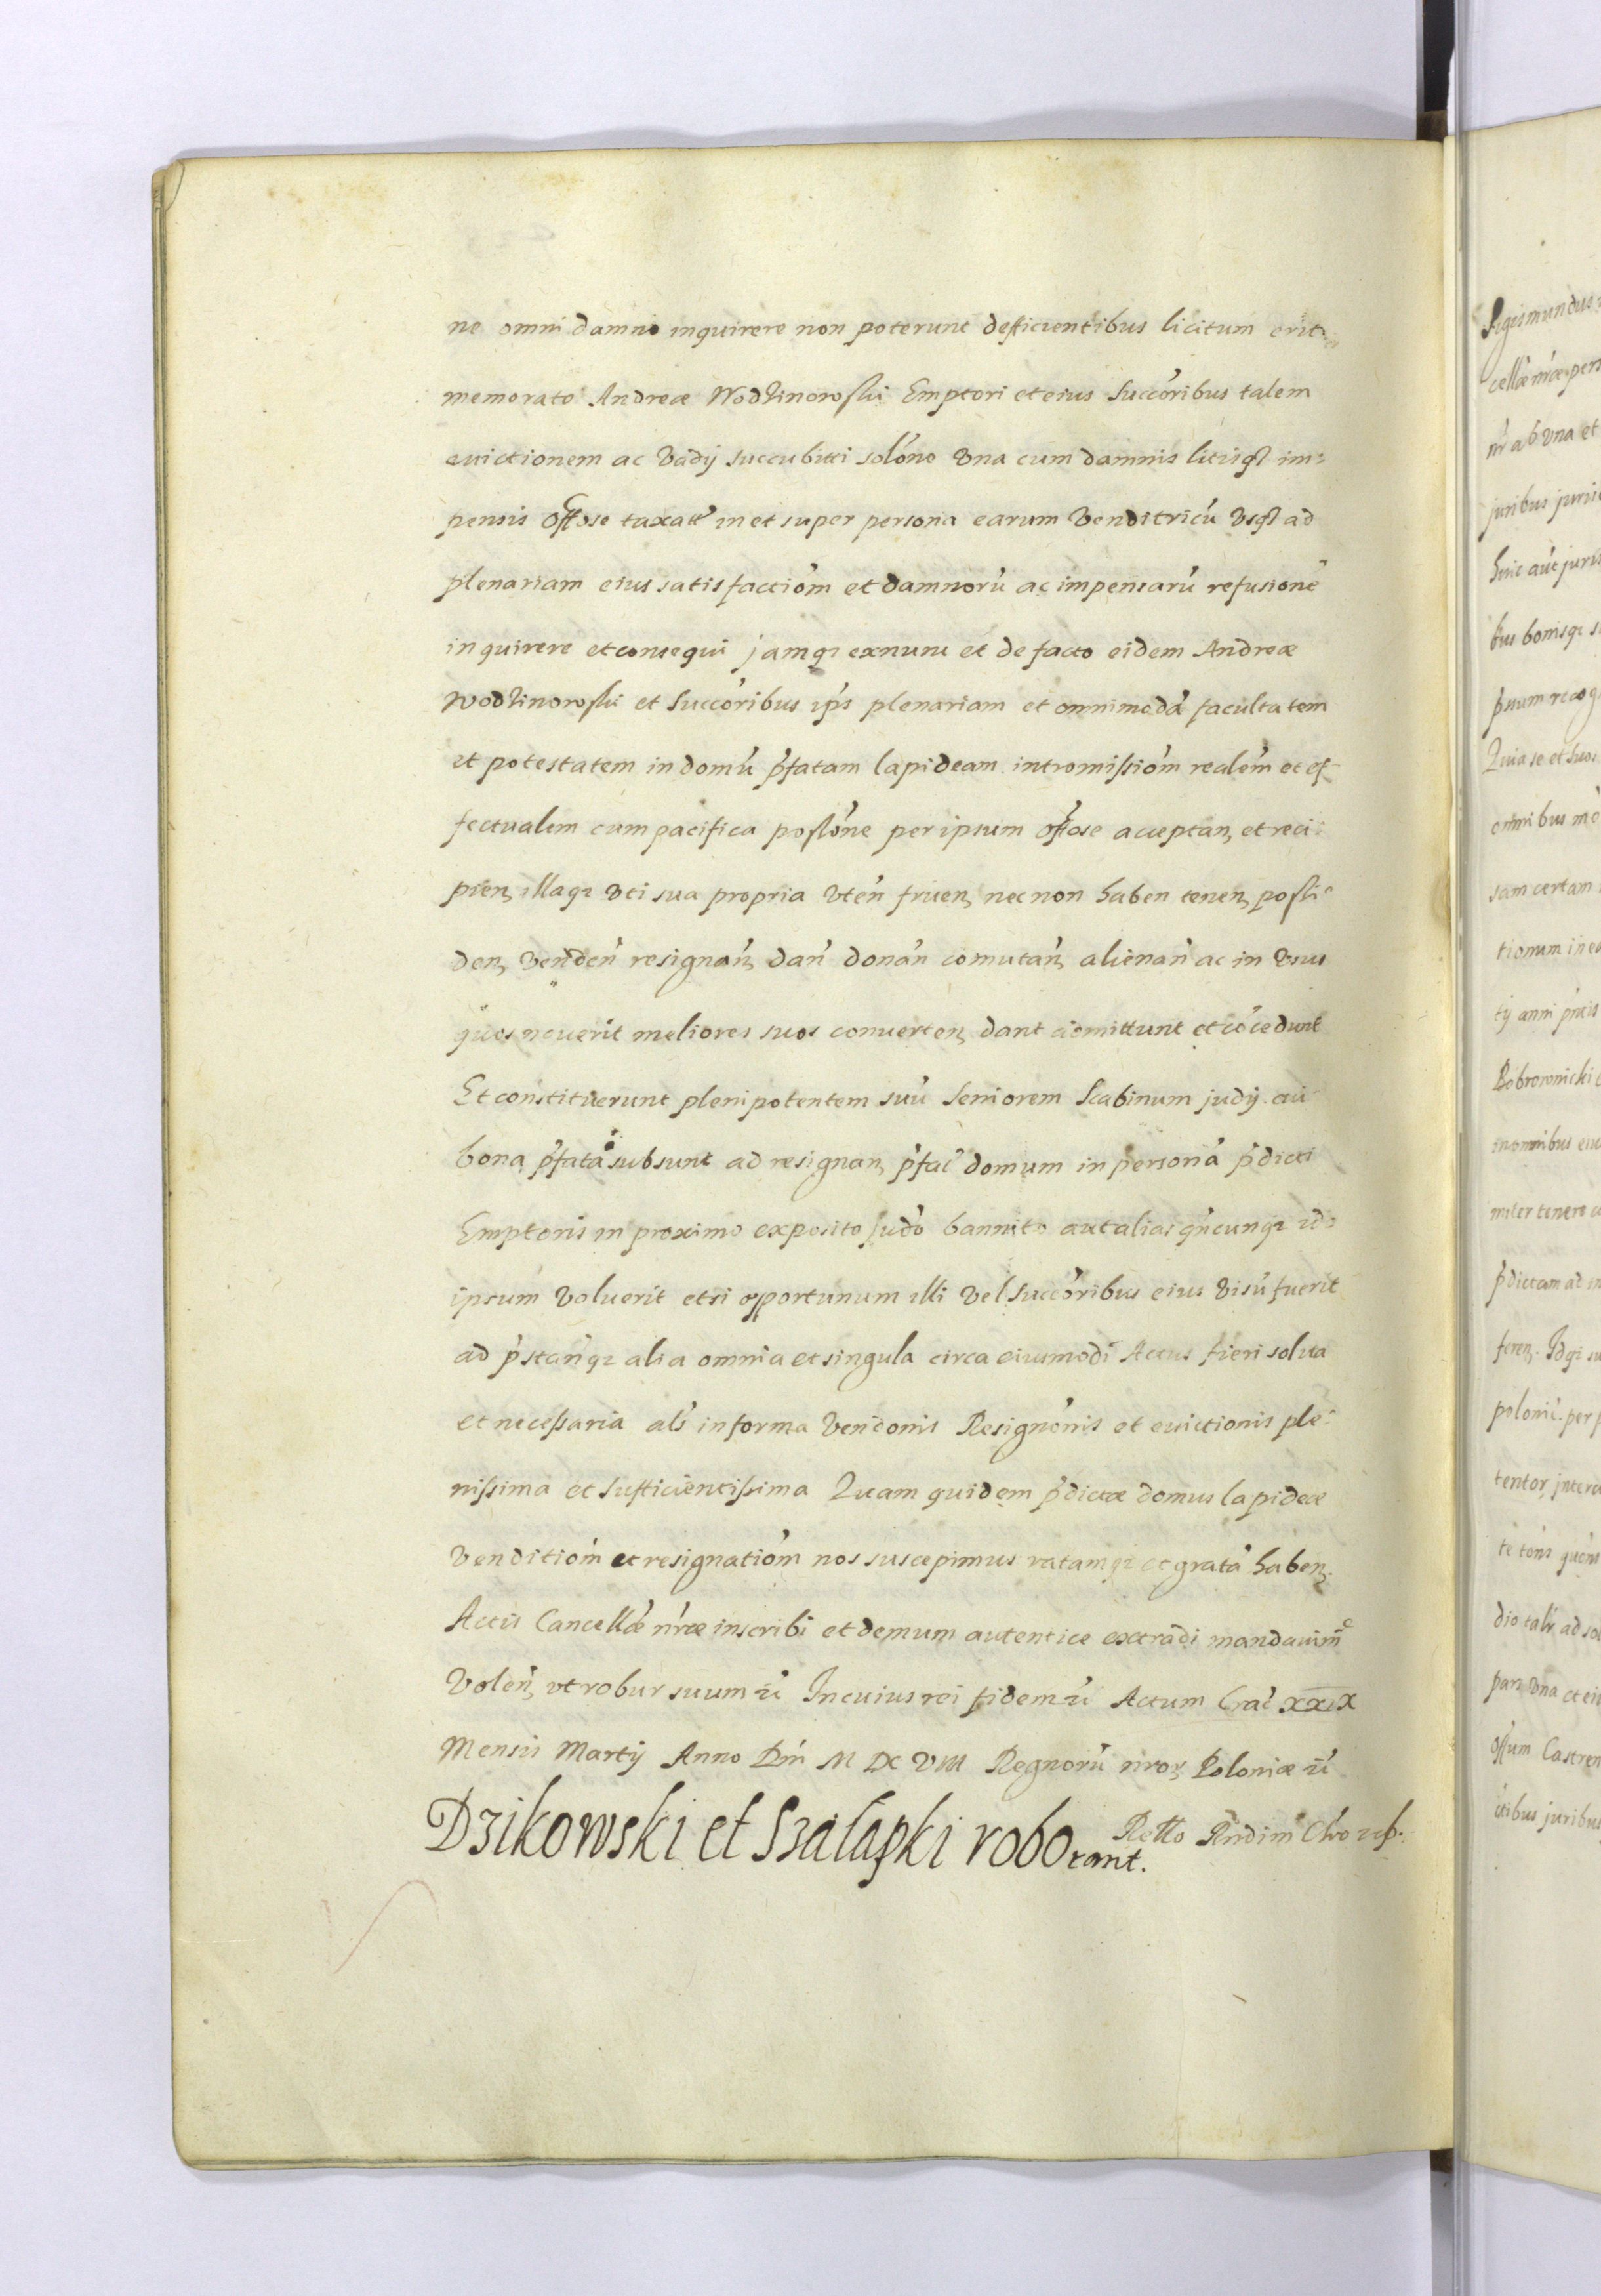 ne omni damno inquirere non poterunt defficientibus licitum erit
memorato Andreæ Wodzinowski Emptori et eius Succõribus talem
euictionem ac Vadij succubitti solõne Vna cum damnis litisq3 im=
pensis offose taxatt in et super persona earum Venditricũ Vsq3 ad
plenariam eius satisfactiõm et damnorũ ac impensarũ refusionẽ
inquirere et consequi jamq3 exnunc et de facto eidem Andreæ
Wodzinowski et Succõribus ips plenariam et omnimodã facultatem
et potestatem in domũ p̃fatam lapideam intromissiõm realẽm et ef
fectualem cum pacifica possõne per ipsum offose acceptan, et reci
pien, illaq3 Vti sua propria Vtẽn fruen, nec non haben tenen, possi
den, Vendẽn resignañ, dañ donañ comutañ, alienañ ac in Vsus
quos nouerit meliores suos conuerten, dant admittunt et cõcedunt
Et constituerunt plenipotentem suũ Seniorem Scabinum judij cui
bona p̃fata subsunt ad resignan, p̃fac̃ domum in personã p̃dicti
Emptoris in proximo exposito judõ bannito aut alias qñcunq3 id
ipsum Voluerit et si opportunum illi Vel Succõribus eius Visũ fuerit
ad p̃stañq3 alia omnia et singula circa eiusmodi Actus fieri solita
et necessaria als in forma Vendonis Resignõnis et euictionis ple
nissima et Sufficientissima Quam quidem p̃dictæ domus lapideæ
Venditiõm et resignatiõm nos suscepimus ratamq3 et gratã haben,
Actis Cancellæ nr̃æ inscribi et demum autentice extradi mandauim9
Volen, vt robur suum &c̃ In cuius rei fidem &c̃ Actum Crac̃ XXIX
Mensis Martij Anno Dm̃ M DC VIII Regnorũ nror, Poloniæ &c̃
Dzikowski et Szalapski roborant. Retto
Sigismundus
cellæ nr̃æ pers
nr̃ ab Vna et
juribus juris
huic aũt juris
bonisq3 s
p̃sum recog
Quia se et suos
omnibus
sam certam
tionum in ea
tij anni
Bobrownicki
in omnibus eius
tenere
p̃dictam ad in
feren, Idq3 su
polonic̃ per p
tentor, interc

dio tali ad so
pars Vna et eiu
offum Castren
juribus